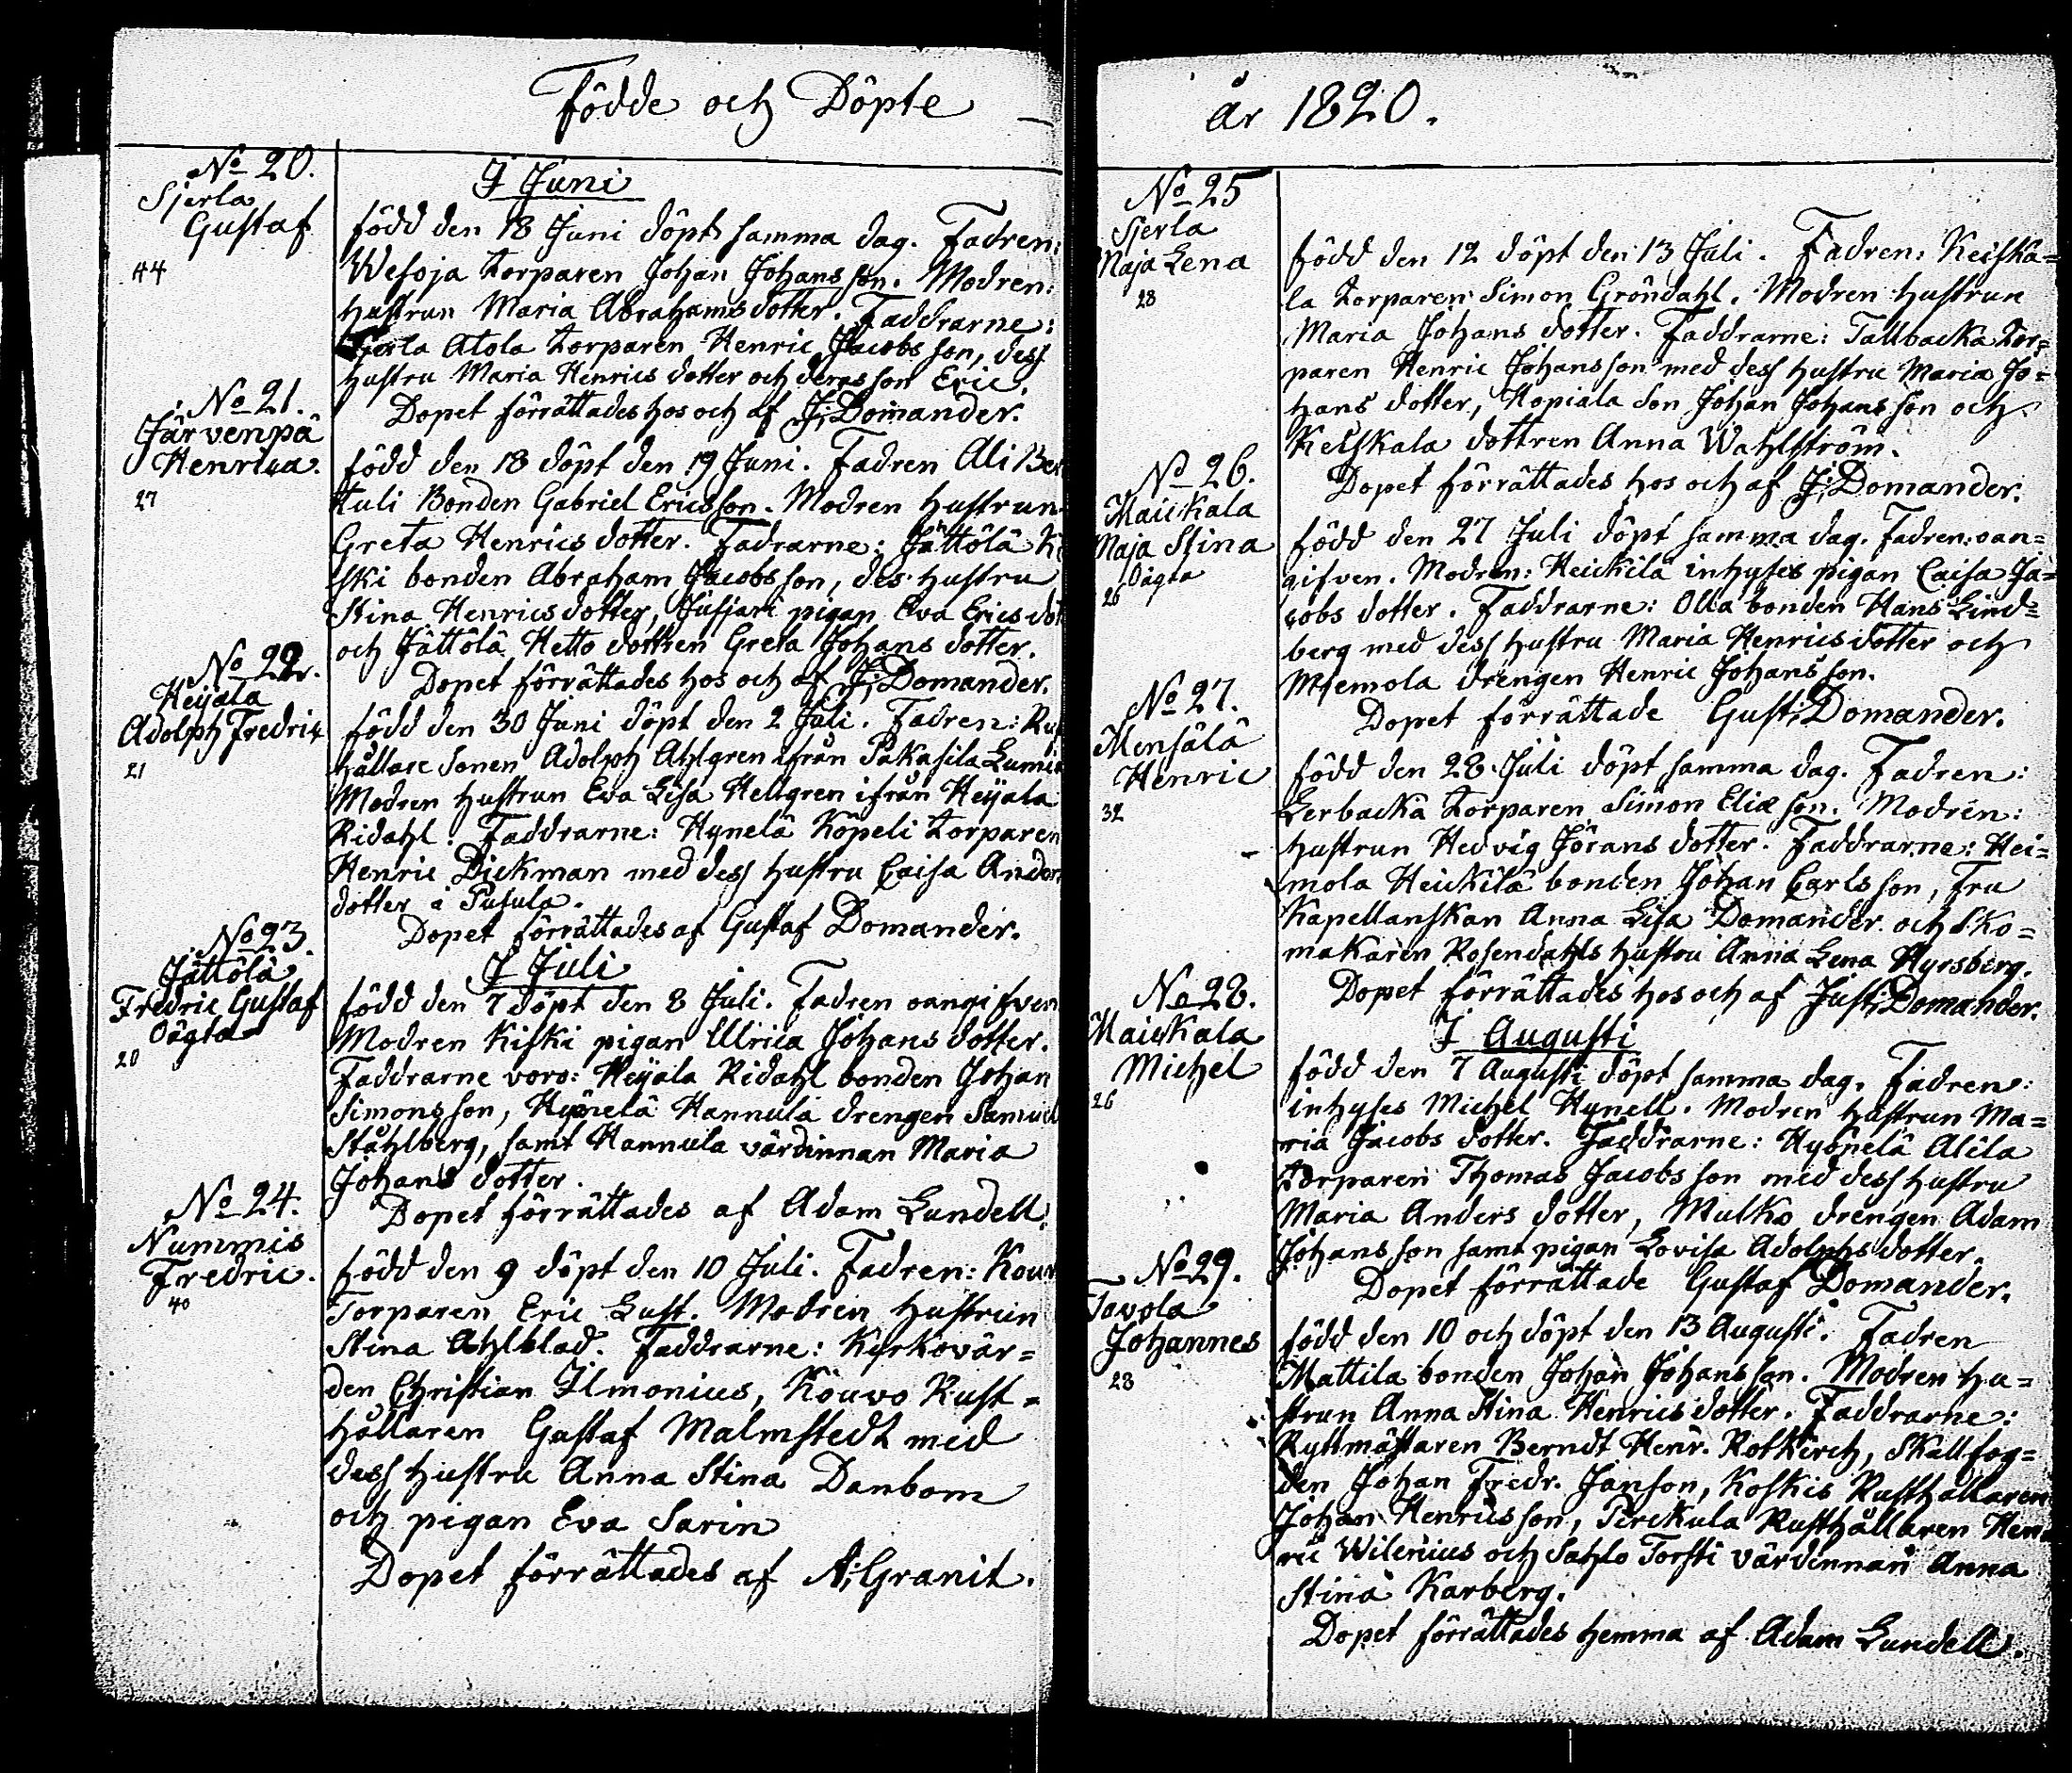 Födde och Döpte
No 20.
Sjerla
Gustaf
44
I Juni
född den 18 Juni döpt samma dag. Fadren:
Wesoja torparen Johan Johansson. Modren:
hustrun Maria Abrahamsdotter. Faddrarne:
Sjerla Atola torparen Henric Jacobsson, dess
hustru Maria Henrics dotter och deras son Eric.
Dopet förrättades hos och af J; Domander.
No 21.
Järvenpä
Henrica.
27
född den 18 döpt den 19 Juni. Fadren Ali Ber
tuli Bonden Gabriel Ericsson. Modren hustrun
Greta Henrics dotter. Fadrarne: Jättölä Ki
ski bonden Abraham Jacobsson, des hustru
Stina Henricsdotter, Jusjari pigan Eva Erics dot
och Jättölä Hetto dottren Greta Johans dotter.
Dopet förrättades hos och af J; Domander.
No 22.
Heijala
Adolph Fredric
21
född den 30 Juni döpt den 2 Juli. Fadren: Rus
hållare sonen Adolph Ahlgren ifrån Pakasila
Modren hustrun Eva Lisa Hellgren ifrån Heijala
Ridahl. Faddrarne: Hynelä Köpeli torparen
Henric Dickman med dess hustru Caisa Anders
dotter i Pusula.
Dopet förrättades af Gustaf Domander.
No 23.
Jättölä
Fredric Gustaf
Oägta
20
I Juli
född den 7 döpt den 8 Juli. Fadren oangifven
Modren Kiski pigan Ulrica Johans dotter.
Faddrarne voro: Heijala Ridahl bonden Johan
Simonsson, Hyönelä Hannula drengen Samuel
Ståhlberg, samt Hannula värdinnan Maria
Johans dotter.
Dopet förrättades af Adam Lundell.
No 24.
Nummis
Fredric.
40
född den 9 döpt den 10 Juli. Fadren: Kouv
Torparen Eric Lust. Modren hustrun
Stina Ahlblad. Faddrarne: Kyrkovär=
den Christian Ilmonius, Kouvo Rust=
hållaren Gustaf Malmstedt med
dess hustru Anna Stina Danbom
och pigan Eva Sarin
Dopet förrättades af A; Granit.
år 1820.
No 25
Sjerla
Maja Lena
28
född den 12 döpt den 13 Juli. Fadren: Keiska=
la torparen Simon Gröndahl. Modren hustrun
Maria Johans dotter. Faddrarne: Tallbacka tor=
paren Henric Johansson med dess hustru Maria Jo=
hans dotter, Hopiala son Johan Johansson och
Keiskala dottren Anna Wahlström.
Dopet förrättades hos och af J; Domander.
No 26.
Maickala
Maja Stina
Oägta
26
född den 27 Juli döpt samma dag. Fadren: oan=
gifven. Modren: Heickilä inhyses pigan Caisa Ja=
cobs dotter. Faddrarne: Olla bonden Hans Lind=
berg med dess hustru Maria Henrics dotter och
Miemola drengen Henric Johansson.
Dopet förrättade Gust; Domander.
No 27.
Mensälä
Henric
32
född den 28 Juli döpt samma dag. Fadren:
Lerbacka torparen Simon Eliæ son. Modren:
hustrun Hedvig Jörans dotter. Faddrarne: Hei=
mola Heickilä bonden Johan Carlsson, Fru
Kapellanskan Anna Lisa Domander och Sko=
makaren Rosendahls hustru Anna Lena Hyrsberg.
Dopet förrättades hos och af Just; Domander.
No 28.
Maickala
Michel
26
I Augusti
född den 7 Augusti döpt samma dag. Fadren:
inhyses Michel Hynell. Modren hustrun Ma=
ria Jacobs dotter. Faddrarne: Hyönelä Alila
torparen Thomas Jacobsson med dess hustru
Maria Anders dotter, Mulko drengen Adam
Johansson samt pigan Lovisa Adolphsdotter.
Dopet förrättade Gustaf Domander.
No 29.
Tavola
Johannes
28
född den 10 och döpt den 13 Augusti. Fadren
Mattila bonden Johan Johansson. Modren hu=
strun Anna Stina Henrics dotter. Faddrarne:
Ryttmästaren Berndt Henr. Rotkirch, Skallfog=
den Johan Fredr. Janson, Koskis Rusthållaren
Johan Henricsson, Perckula Rusthållaren Hen
ric Wilenius och Sahlo Torsti värdinnan Anna
Stina Karberg.
Dopet förrättades hemma af Adam Lundell.